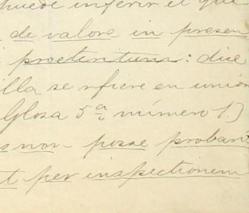 puede inferir el que
de valore in presen
practentium: dice
illa se rfiere en union
Glosa 5ª número 1)
s non posse probari
t per inspectionem